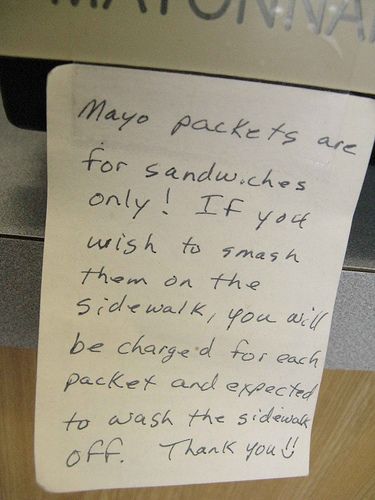 MAYONNAI
Mayo packets are
for sandwiches
only! If you
wish to smash
them on the
sidewalk, you will
be charged for each
packet and expected
to wash the sidewalk
off. Thank you!!